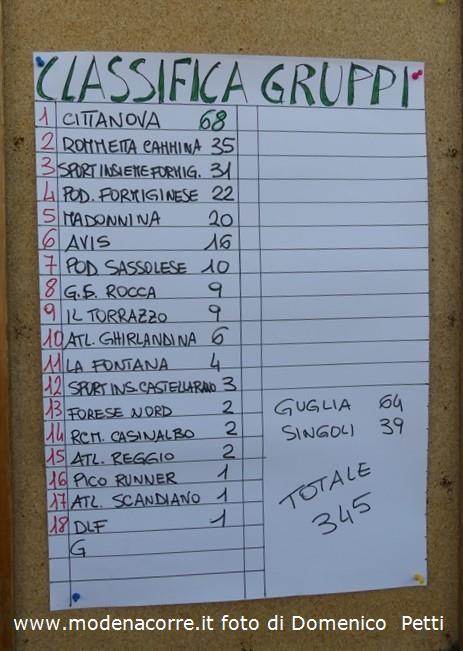 CLASSIFICA GRUPPI
1 CITTANOVA 68
2 ROMMETTA CAMMINA 35
3 SPORTINSIEME FORMIG. 31
4 POD. FORMIGINESE 22
5 MADONNINA 20
6 AVIS 16
7 POD SASSOLESE 10
8 G.S. ROCCA 9
9 IL TORRAZZO 9
10 ATL. GHIRLANDINA 6
11 LA FONTANA 4
12 SPORT INS. CASTELLARANO 3
13 FORESE NORD 2
14 RCM. CASINALBO 2
15 ATL. REGGIO 2
16 PICO RUNNER 1
17 ATL. SCANDIANO 1
18 DLF 1
G
GUGLIA 64
SINGOLI 39
TOTALE
345
www.modenacorre.it foto di Domenico Petti